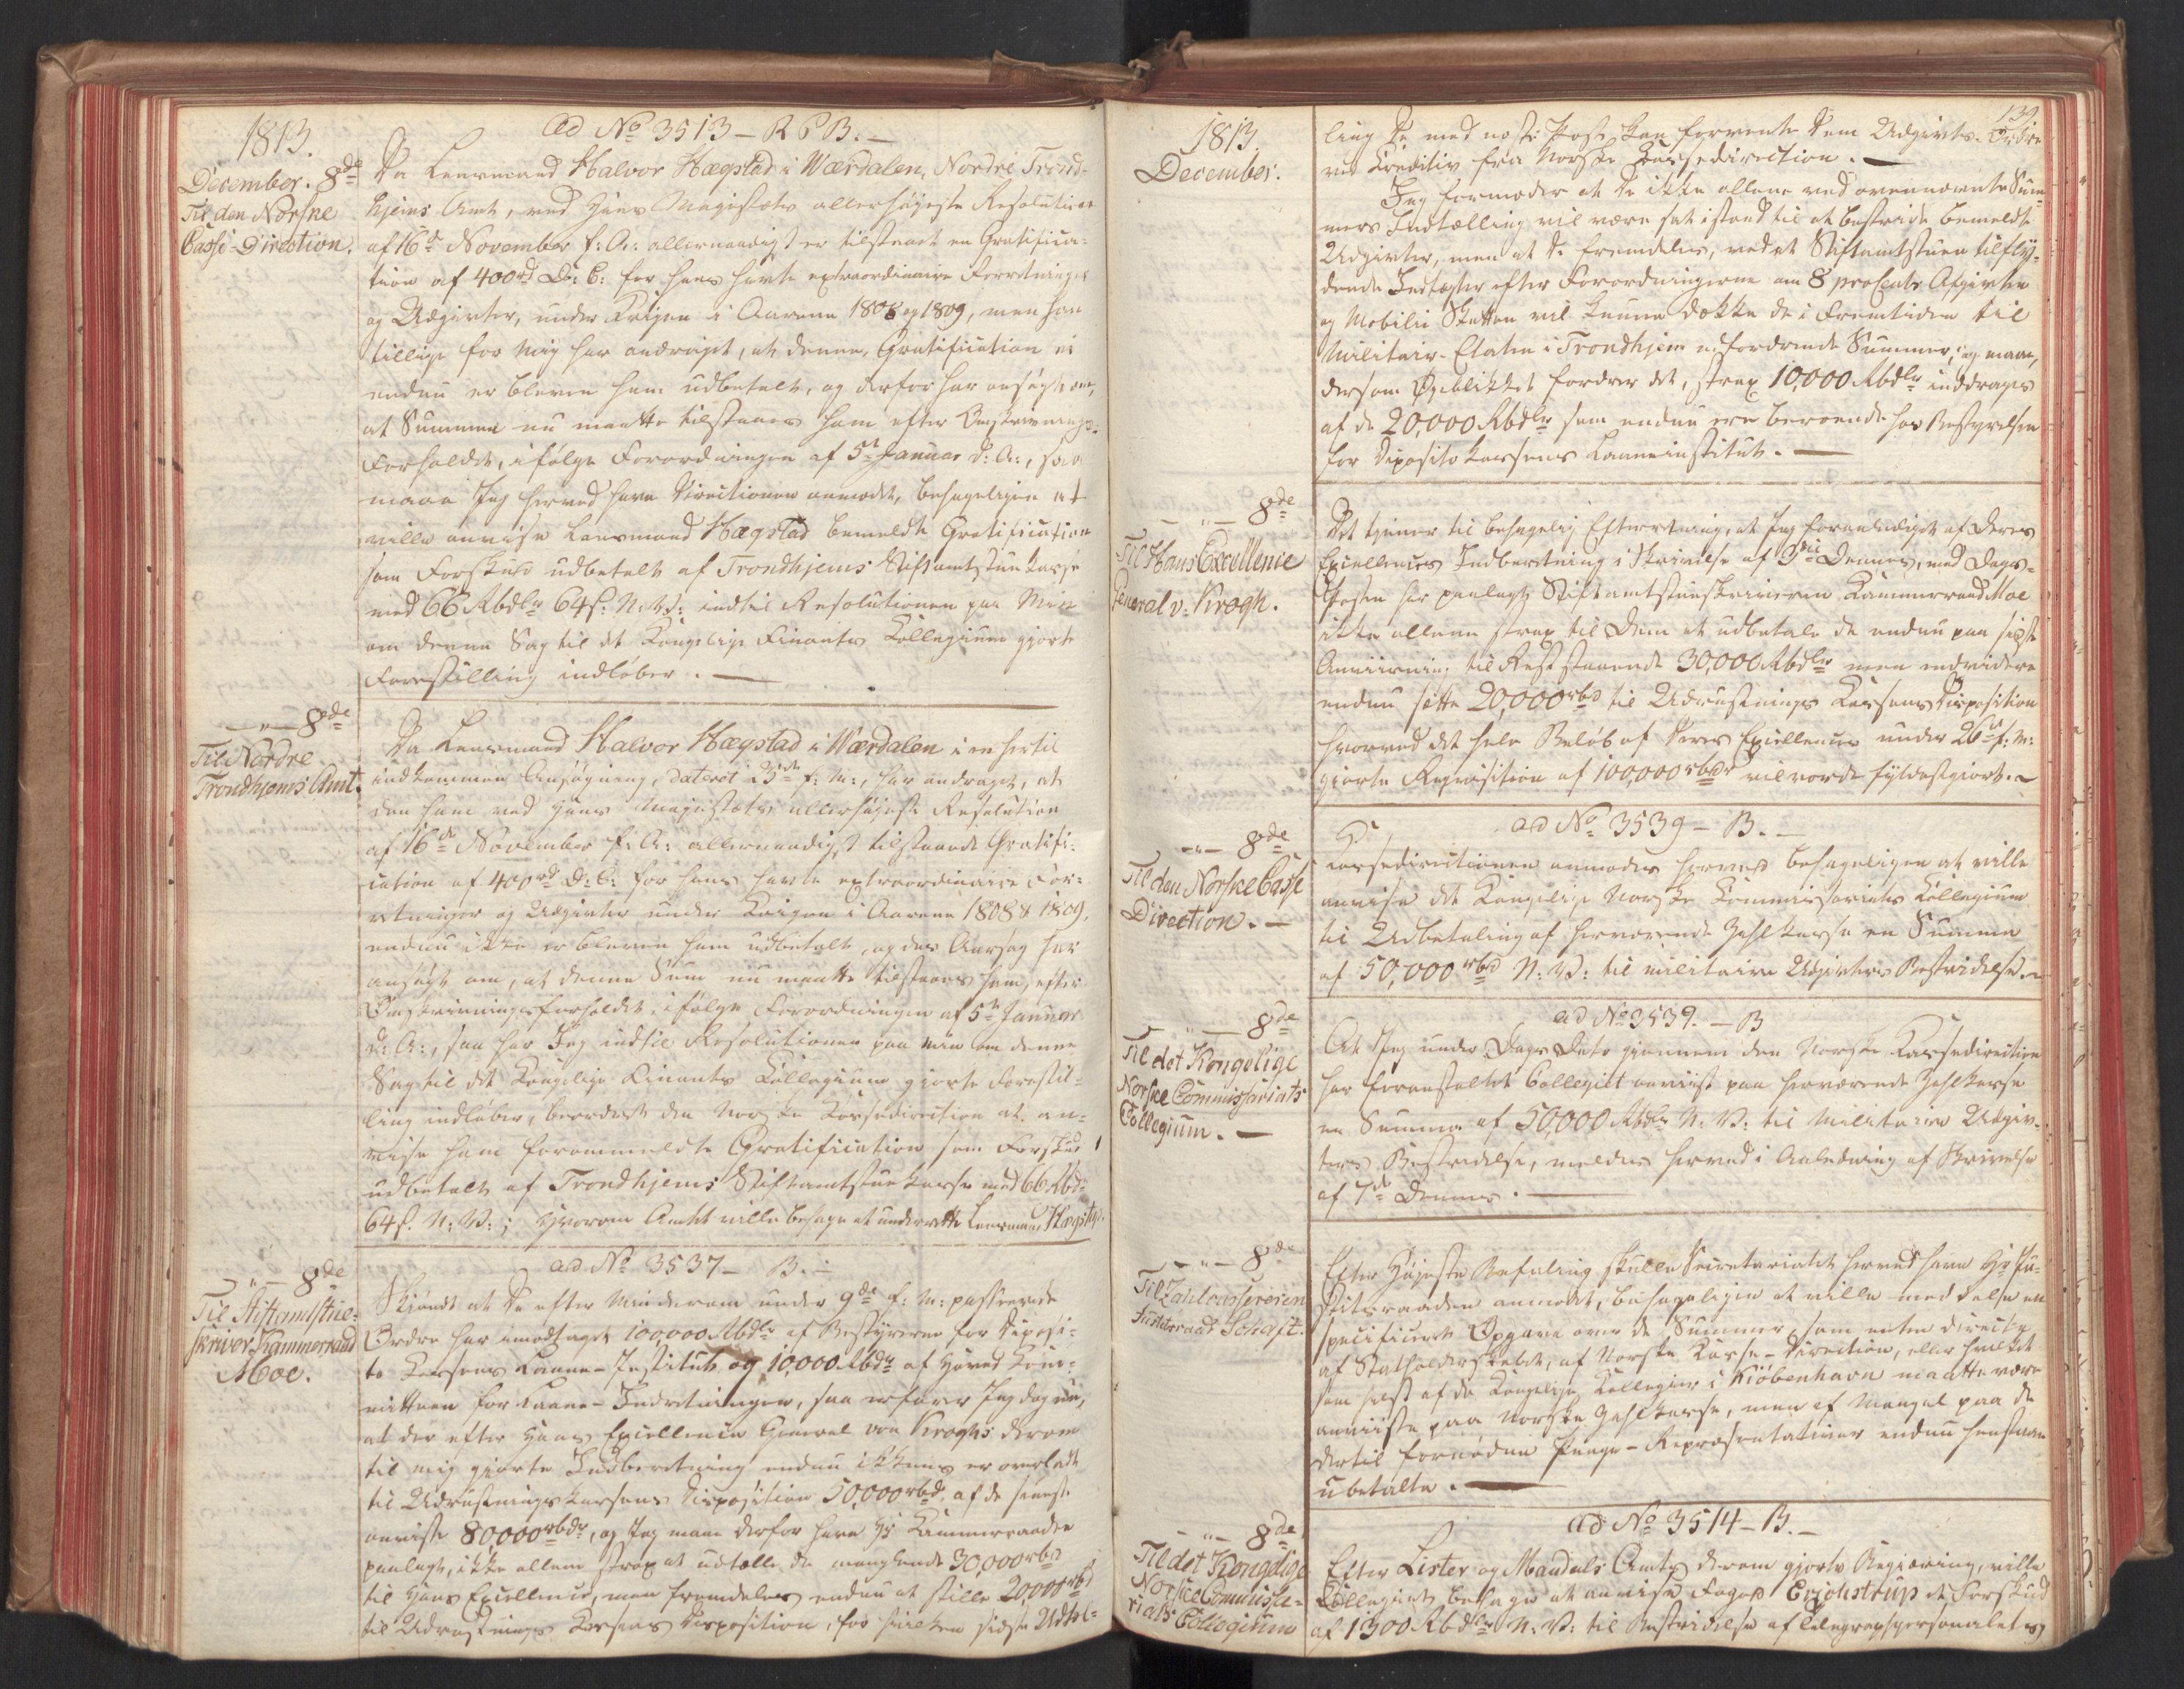 1813.
ad No 3513 – R P B. –
December. 8de
Til den Norske
Casse-Direction.
Da Lensmand Halvor Hægstad i Værdalen, Nordre Trond-
hjems Amt, ved Hans Majestæts allerhøjeste Resolution
af 16de November f: A: allernaadigst er tilstaaet en Gratifica-
tion af 400rd D: C: for hans havte extraordinaire Forretninger
og Udgivter, under Krigen i Aarene 1808 og 1809, men han
tillige for mig har andraget, at denne Gratification ei
endnu er bleven ham udbetalt, og derfor har ansøgt om,
at Summen nu maatte tilstaaes ham efter Omskrivnings-
Forholdet, ifølge Forordningen af 5te Januar d: A:, saa
maae Jeg herved have Directionen anmodet, behageligen at
ville anvise Lensmand Hægstad bemeldte Gratification
som Forskud udbetalt af Trondhjems Stiftamtstue Kasse
med 66 Rbdlr 64 s. N: V: indtil Resolutionen paa Min
om denne Sag til det Kongelige Finants Collegium gjorte
Forestilling indløber. —
– " – 8de
Til Nordre
Trondhjems Amt.
Da Lensmand Halvor Hægstad i Værdalen i en hertil
indkommen Ansøgning, dateret 23de f: M:, har andraget, at
den ham ved Hans Majestæts allerhøjeste Resolution
af 16de November f: A: allernaadigst tilstaaede Gratifi-
cation af 400rd D: C: for hans havte extraordinaire For-
retninger og Udgivter under Krigen i Aarene 1808 & 1809,
endnu ikke er bleven ham udbetalt, og der Aarsag har
ansøgt om, at denne Sum nu maatte tilstaaes ham, efter
Omskrivningsforholdet, ifølge Forordningen af 5te Januar
d: A:, saa har Jeg indtil Resolutionen paa min om denne
Sag til det Kongelige Finants Collegium gjorte Forestil-
ling indløber, beordret den Norske Kassedirection at an-
vise ham forommeldte Gratification som Forskud
udbetalt af Trondhjems Stiftamtstue Kasse med 66 Rbd
64 s. N: V: ; Hvorom Amtet ville behage at underrette Lensmand Hægstad.
ad No 3537 – B. –
– " – 8de
Til Stiftamtstue-
skriver Kammerraad
Moe.
Skjøndt at De efter Min derom under 9de f: M: passerede
Ordre har imodtaget 100,000 Rbdlr af Bestyrerne for Deposi-
to Cassens Laane-Institut og 10,000 Rbdr af Hoved Kom-
mitteen for Laane-Indretningen, saa erfarer Jeg dog nu,
at der efter Hans Excellence General von Kroghs derom
til mig gjorte Indberetning endnu ikkuns er overladt
til Udrustnings Kassens Disposition 50,000 rbd. af de seneste
anviste 80,000 rbdr, og Jeg maae derfor have Hr Kammerraaden
paalagt, ikke allene strax at udtælle de manglende 30,000 rbd
til Hans Excellence, men fremdeles endnu at stille 20,000 rbd
til Udrustnings Kassens Disposition, for hvilken sidste Udtæl-
139.
1813.
December.
ling De med næste Post kan forvente Dem Udgivts-Ordre
ved Creditiv fra Norske Kassedirection. —
Jeg formoder at De ikke allene ved ovennævnte Sum-
mers Indtælling vil være sat istand til at bestride bemeldte
Udgivter, men at De fremdeles, ved at Stiftamtstuen tilfly-
dende Indtægter efter Forordningerne om 8 proCents Afgivten
og Mobilie Skatten vil kunne dække de i Fremtiden til
Militair-Etaten i Trondhjem udfordrende Summer; og maae,
dersom Øyeblikket fordrer det, strax 10,000 Rbdlr inddrages
af de 20,000 Rbdlr som endnu ere beroende hos Bestyrelsen
for Deposito Kassens Laaneinstitut. —
– " – 8de
Til Hans Excellence
General v: Krogh.
Det tjener til behagelig Efterretning, at Jeg foranlediget af Deres
Excellences Indberetning i Skrivelse af 3die Dennes, med Dags-
Posten har paalagt Stiftamtstueskriveren Kammerraad Moe
ikke allene strax til Dem at udbetale de endnu paa sidste
Anviisning til Rest staaende 30,000 Rbdlr men endvidere
endnu sette 20,000 rbd til Udrustnings Kassens Disposition
hvorved det hele Beløb af Deres Excellences under 26de f: M:
gjorte Reqvisition af 100,000 rbdr vil vorde fyldestgiort. –
– " – 8de
Til den Norske Casse
Direction. –
ad No 3539 – B. –
Kassedirectionen anmodes herved behageligen at ville
anvise det Kongelige Norske Commissariats Collegium
til Udbetaling af herværende Zahlkasse en Summa
af 50,000 rbd N: V: til militaire Udgivters Bestridelse. –
– " – 8de
Til det Kongelige
Norske Commissariats
Collegium. –
ad No 3539. – B
At Jeg under Dags Dato gjennem den Norske Kassedirection
har foranstaltet Collegiet anviist paa herværende Zahlkasse
en Summa af 50,000 Rbdlr N: V: til Militaire Udgiv-
ters Bestridelse, meldes herved i Anledning af Skrivelse
af 7de Dennes. —
– " – 8de
Til Zahlcassereren
Justitsraad Schaft.
Efter Højeste Befaling skulle Secretariatet herved have Hr Ju-
stitsraaden anmodet, behageligen at ville meddele en
specificeret Opgave over de Summer, som enten directe
af Statholderskabet, af Norske Kasse-Direction, eller hvilket
som helst af de Kongelige Collegier i Kiøbenhavn maatte være
anviiste paa Norske Zahlkasse, men af Mangel paa de
dertil fornødne Penge-Repræsentativer endnu henstaae
ubetalte. —
– " – 8de
Til det Kongelige
Norske Commissa-
riats Collegium
ad No 3514 – B. –
Efter Lister og Mandals Amts derom gjorte Begjæring, ville
Collegiet behage at anvise Foged Erichstrup et Forskud
af 1300 Rbdlr N: V: til Bestridelse af Telegraphpersonalets